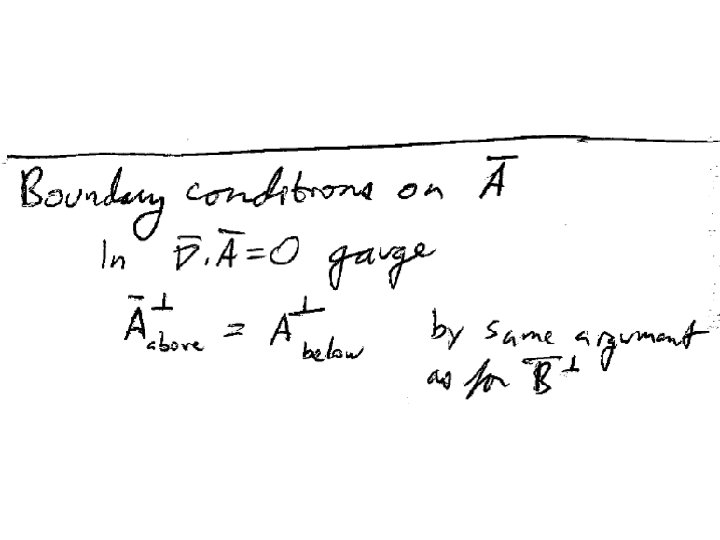 Boundary conditions on A̅
In ∇̅·A̅=0 gauge
A̅⊥above = A⊥below by same argument
as for B̅⊥